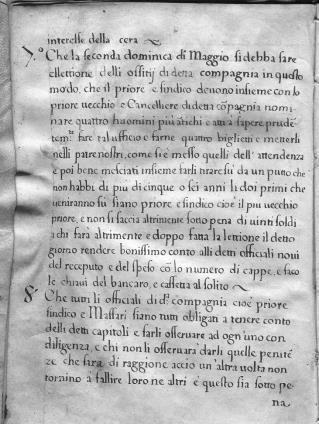 interesse della cera
7.º Che la seconda dominica di Maggio si debba fare
ellettione delli offitij di detta compagnia in questo
modo, che il priore e sindico devono insieme con lo
priore vecchio e Cancelliere di detta cõpagnia nomi
nare quattro huomini più atichi e atti a sapere prudẽ
temte fare tal ufficio e farne quattro biglietti e metterli
nelli patrenostri, come si è messo quelli dell' attendenza
e poi bene mesciati insieme farli tirare sù da un putto che
non habbi di più di cinque o sei anni li doi primi che
veniranno sù siano priore e sindico cioè il più vecchio
priore, e non si faccia altrimente sotto pena di vinti soldi
a chi farà altrimente e doppo fatta la lettione il detto
giorno rendere bonissimo conto alli detti officiali novi
del receputo e del speso cõ lo numero di cappe, e saco
le chiavi del bancaro, e cassetta al solito
8. Che tutti li officiali di dta compagnia cioè priore
sindico e Massari siano tutti obligati a tenere conto
delli detti capitoli e farli osservare ad ogn' uno con
diligenza, e chi non li osservarà darli quelle penitẽ
ze che sarà di raggione acciò un' altra volta non
tornino a fallire loro ne altri è questo sia sotto pe-
na